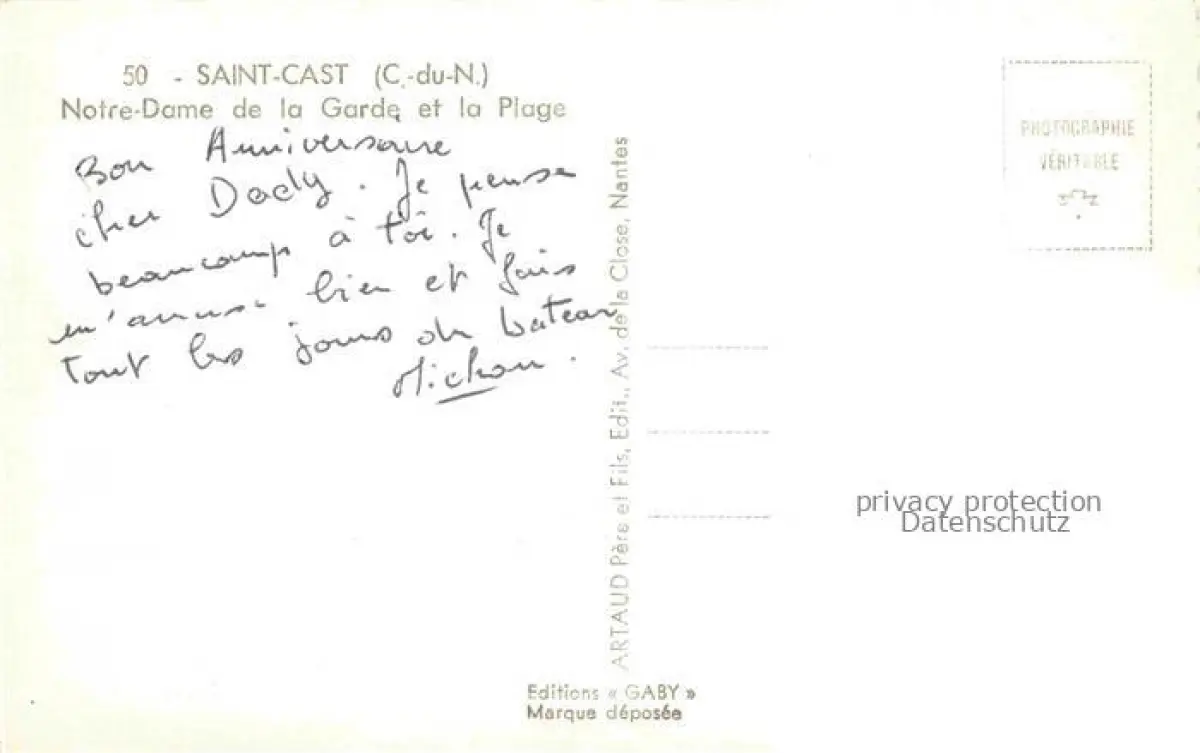 50 - SAINT-CAST (C.-du-N.)
Notre-Dame de la Garde et la Plage
Bon Anniversaire
cher Dady. Je pense
beaucoup à toi. Je
m'amuse bien et fais
tout les jours du bateau
Michou.
ARTAUD Père et Fils, Edit., Av. de la Close, Nantes
PHOTOGRAPHIE
VÉRITABLE
privacy protection
Datenschutz
Editions « GABY »
Marque déposée